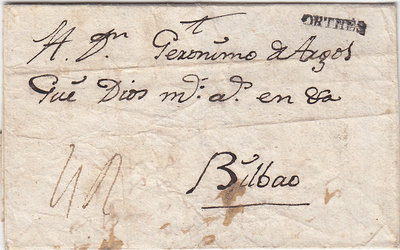 ORTHES
A Dn Geronimo de Argos
Que Dios ms as en
Bilbao